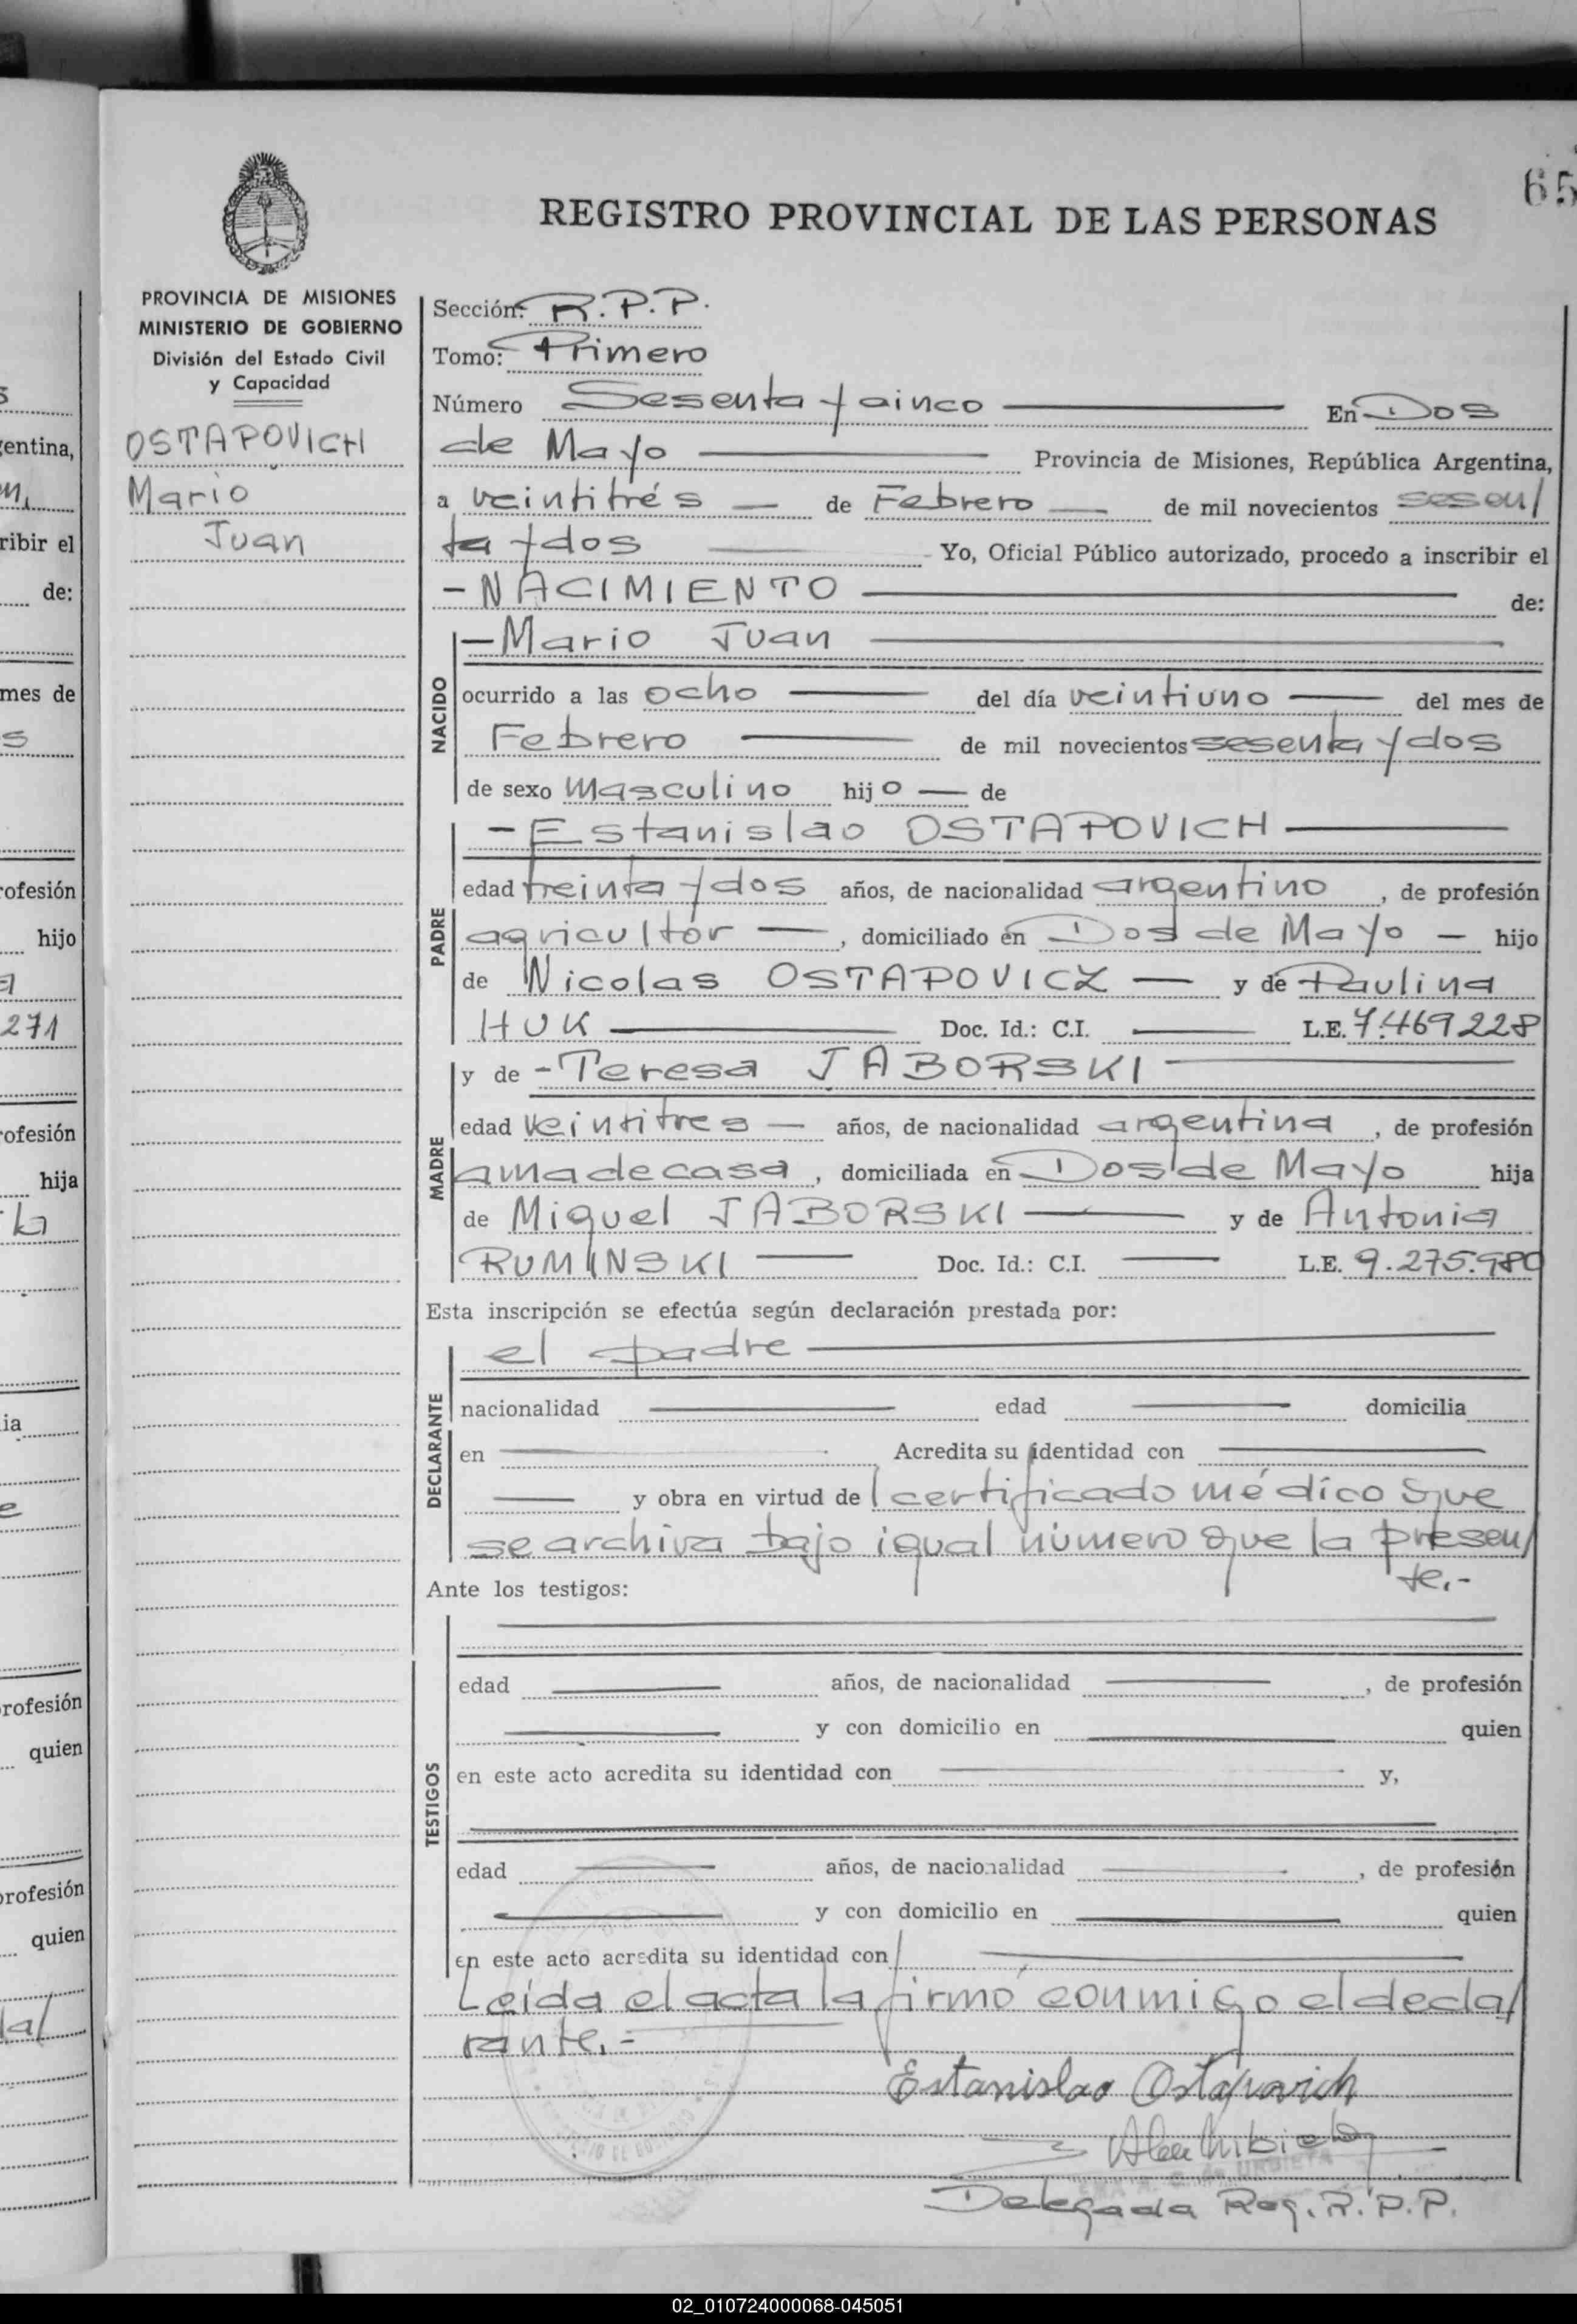 65
REGISTRO PROVINCIAL DE LAS PERSONAS
PROVINCIA DE MISIONES
MINISTERIO DE GOBIERNO
División del Estado Civil
y Capacidad
OSTAPOVICH
Mario
Juan
Sección: R.P.P.
Tomo: Primero
Número Sesenta y cinco En Dos
de Mayo Provincia de Misiones, República Argentina,
a veintitrés de Febrero de mil novecientos sesen/
ta y dos Yo, Oficial Público autorizado, procedo a inscribir el
-NACIMIENTO de:
NACIDO
-Mario Juan
ocurrido a las ocho del día veintiuno del mes de
Febrero de mil novecientos sesenta y dos
de sexo masculino hijo de
PADRE
-Estanislao OSTAPOVICH
edad treinta y dos años, de nacionalidad argentino, de profesión
agricultor, domiciliado en Dos de Mayo - hijo
de Nicolas OSTAPOVICZ y de Paulina
HUK Doc. Id.: C.I. L.E. 7.469228
MADRE
y de -Teresa JABORSKI
edad veintitres años, de nacionalidad argentina, de profesión
ama de casa, domiciliada en Dos de Mayo hija
de Miguel JABORSKI y de Antonia
RUMINSKI Doc. Id.: C.I. L.E. 9.275.980
Esta inscripción se efectúa según declaración prestada por:
DECLARANTE
el padre
nacionalidad edad domicilia
en Acredita su identidad con
y obra en virtud de certificado médico que
se archiva bajo igual número que la presen/
te.-
Ante los testigos:
TESTIGOS
edad años, de nacionalidad , de profesión
y con domicilio en quien
en este acto acredita su identidad con y,
edad años, de nacionalidad , de profesión
y con domicilio en quien
en este acto acredita su identidad con
Leída el acta la firmó conmigo el decla/
rante.-
Estanislao Ostapovich
Delegada Reg. R.P.P.
gentina,
ribir el
de:
mes de
s
rofesión
hijo
271
rofesión
hija
ia
rofesión
quien
rofesión
quien
la/
02_010724000068-045051